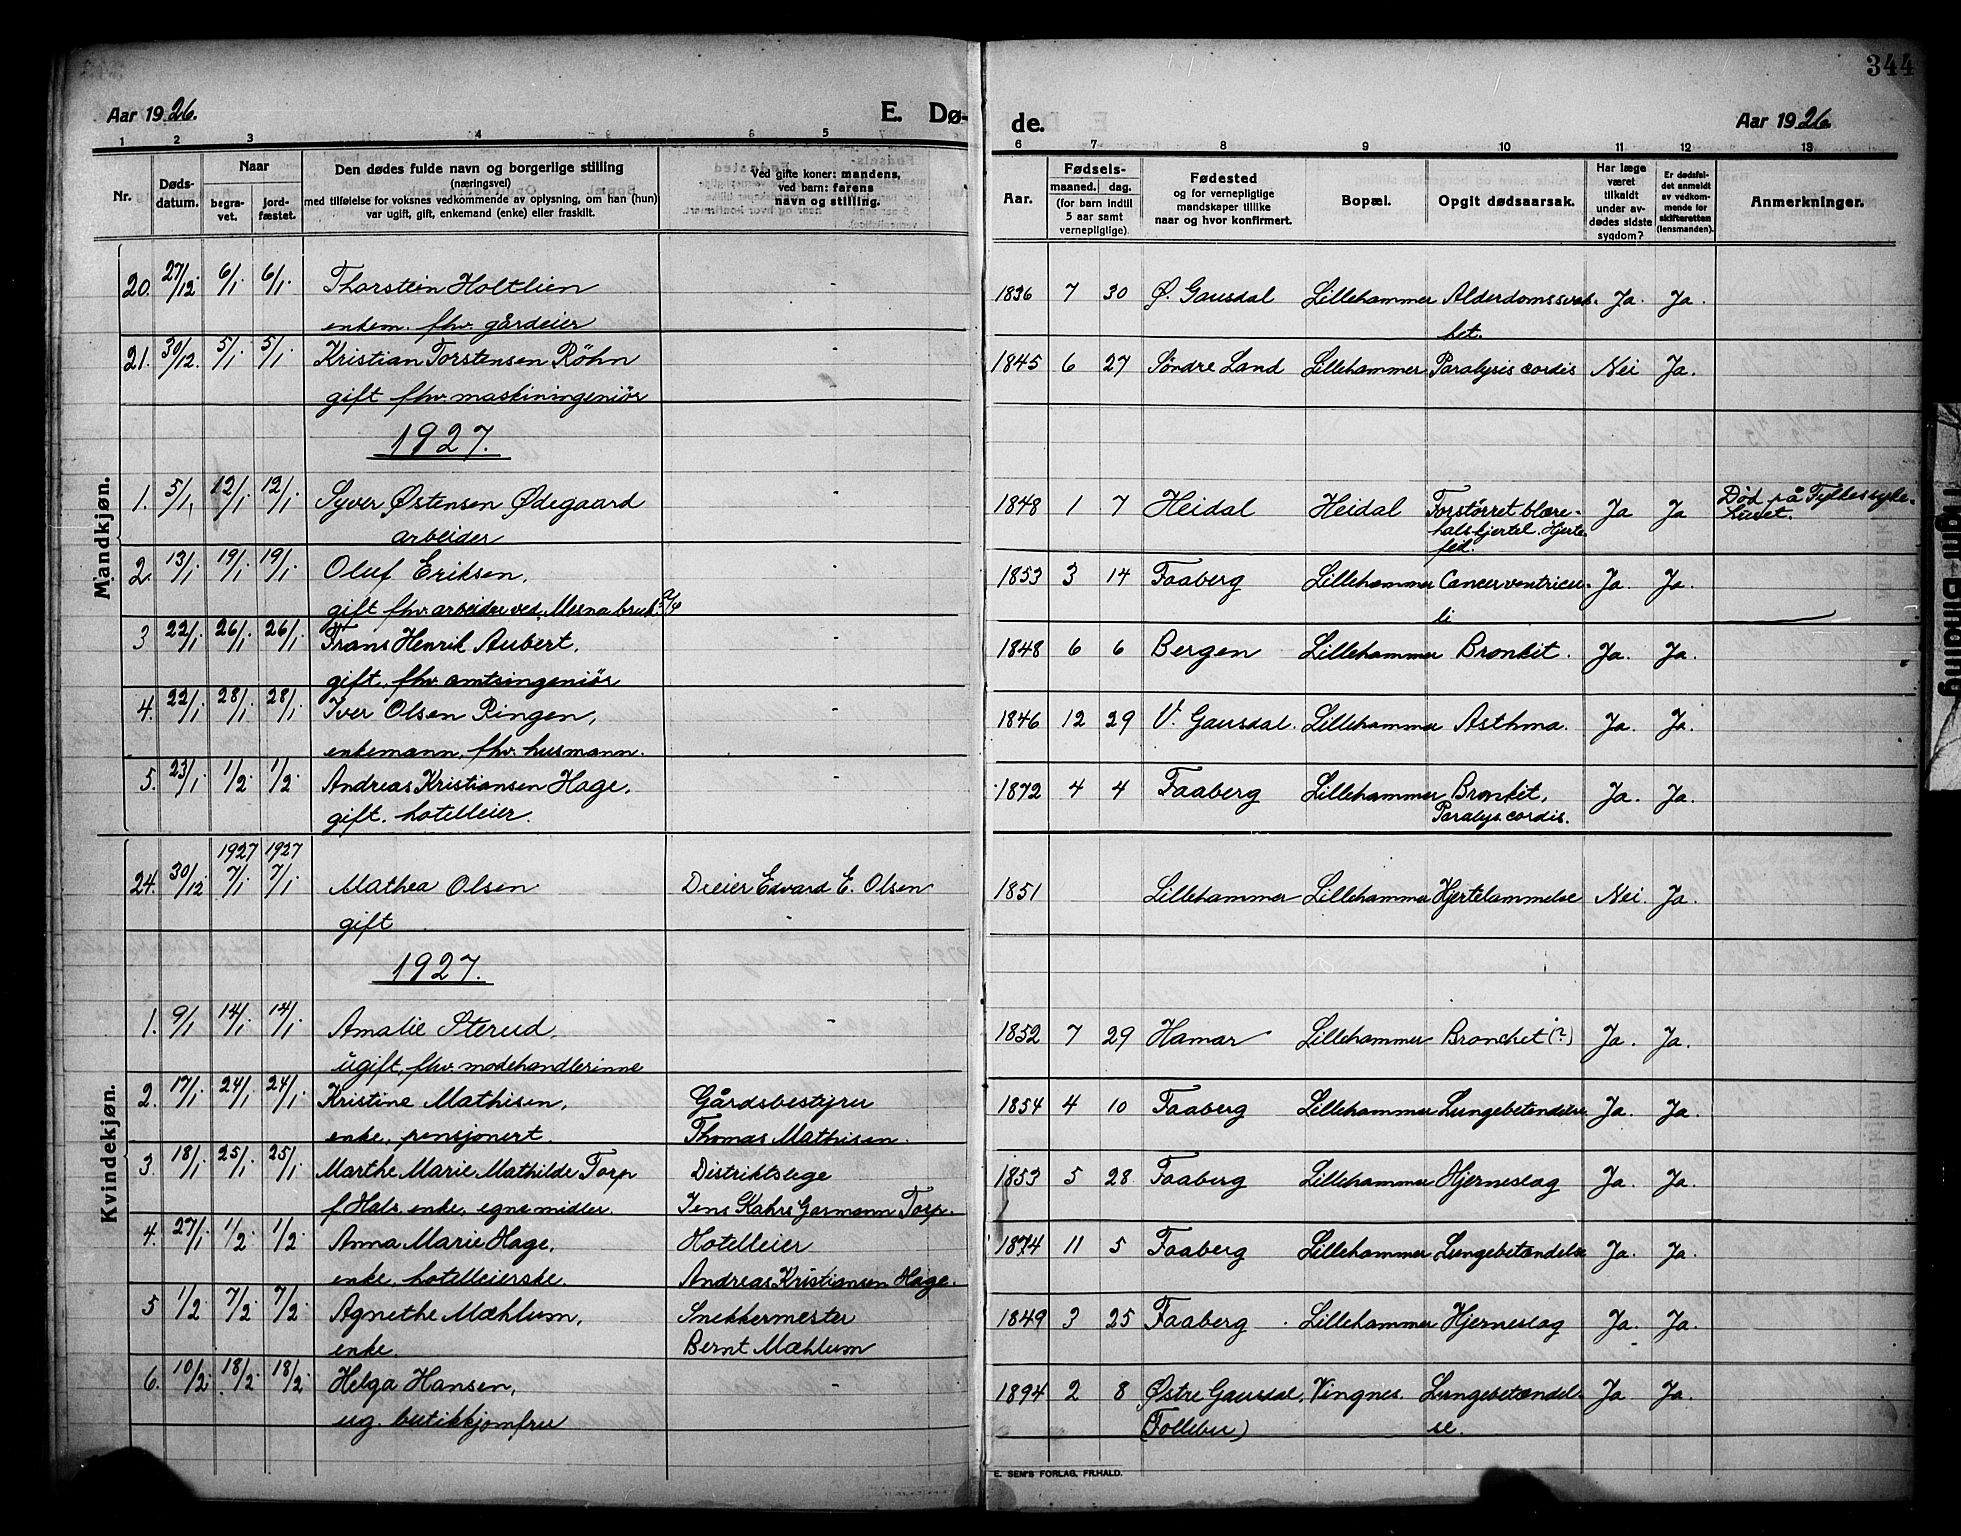 344
Aar 1926.
E. Dø-
de.
Aar 1926
1 2 3 4 5
6 7 8 9 10 11 12 13
Nr.
Døds-
datum.
Naar
begra-
vet.
jord-
fæstet.
Den dødes fulde navn og borgerlige stilling
(næringsvei)
med tilføielse for voksnes vedkommende av oplysning, om han (hun)
var ugift, gift, enkemand (enke) eller fraskilt.
Ved gifte koner: mandens,
ved barn: farens
navn og stilling.
Aar.
Fødsels-
maaned. dag.
(for barn indtil
5 aar samt
vernepligtige).
Fødested
og for vernepligtige
mandskaper tillike
naar og hvor konfirmert.
Bopæl.
Opgit dødsaarsak.
Har læge
været
tilkaldt
under av-
dødes sidste
sygdom?
Er dødsfal-
det anmeldt
av vedkom-
mende for
skifteretten
(lensmanden).
Anmerkninger.
Mandkjøn.
20. 27/12. 6/1. 6/1. Thorstein Holtlien - 1836 7 30 Ø. Gausdal Lillehammer Alderdomssvak- Ja. Ja.
enkem. fhv. gårdeier het.
21. 30/12. 5/1. 5/1. Kristian Torstensen Røhn - 1845 6 27 Søndre Land Lillehammer Paralysis cordis Nei Ja.
gift fhv. maskiningeniør
1927.
1. 5/1. 12/1. 12/1. Syver Østensen Ødegaard - 1848 1 7 Heidal Heidal Forstørret blære- Ja Ja Død på Fylkessyke-
arbeider halskjertel. Hjerte- huset.
feil.
2. 13/1. 19/1. 19/1. Oluf Eriksen, - 1853 3 14 Faaberg Lillehammer Cancer ventricu- Ja. Ja.
gift fhv. arbeider ved Mesna bruk A/S li
3 22/1. 26/1. 26/1. Frans Henrik Aubert, - 1848 6 6 Bergen Lillehammer Bronkit. Ja. Ja.
gift, fhv. amtsingeniør
4. 22/1. 28/1. 28/1. Iver Olsen Ringen, - 1846 12 29 V. Gausdal. Lillehammer Asthma. Ja. Ja.
enkemann, fhv. husmann.
5. 23/1. 1/2. 1/2. Andreas Kristiansen Hage, - 1872 4 4 Faaberg Lillehammer Bronkit, Ja. Ja.
gift. hotelleier. Paralys. cordis.
Kvindekjøn.
1927 1927
24. 30/12. 7/1. 7/1. Mathea Olsen Dreier Edvard E. Olsen 1851 Lillehammer Lillehammer Hjertelammelse Nei. Ja.
gift
1927.
1. 9/1 14/1. 14/1. Amalie Sterud, - 1852 7 29 Hamar Lillehammer Bronchit (?) Ja. Ja.
ugift, fhv. modehandlerinne
2. 17/1. 24/1. 24/1. Kristine Mathisen, Gårdsbestyrer 1854 4 10 Faaberg Lillehammer Lungebetendelse. Ja. Ja.
enke, pensjonert. Thomas Mathisen.
3. 18/1. 25/1. 25/1. Marthe Marie Mathilde Torp Distriktslege 1853 5 28 Faaberg Lillehammer Hjerneslag Ja. Ja.
f. Hals. enke, egne midler. Jens Kahrs Garmann Torp.
4. 27/1. 1/2. 1/2. Anna Marie Hage, Hotelleier 1874 11 5 Faaberg Lillehammer Lungebetændelse Ja. Ja.
enke, hotelleierske. Andreas Kristiansen Hage.
5 1/2 7/2. 7/2. Agnethe Mæhlum, Snekkermester 1849 3 25 Faaberg Lillehammer Hjerneslag Ja. Ja.
enke. Bernt Mæhlum
6. 10/2. 18/2. 18/2. Helga Hansen, - 1894 2 8 Østre Gausdal, Vingnes. Lungebetændel- Ja Ja.
ug. butikkjomfru (Follebu) se.
E. SEM'S FORLAG, FR.HALD.